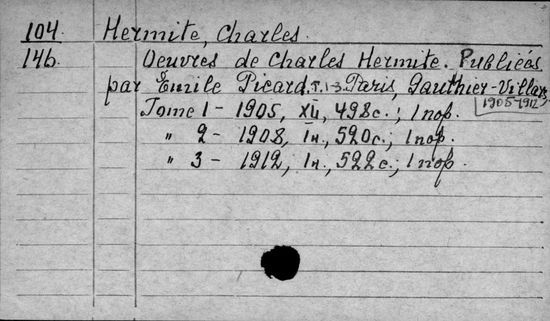 104. Hermite, Charles.
146. Oeuvres de Charles Hermite. Publiées
par Emile Picard. T. 1-3. Paris, Gauthier-Villars,
1905-1912
Tome 1 - 1905, XL, 498 с.; 1 пор.
" 2 - 1908, 1 н., 520 с.; 1 пор.
" 3 - 1912, 1 н., 522 с.; 1 пор.